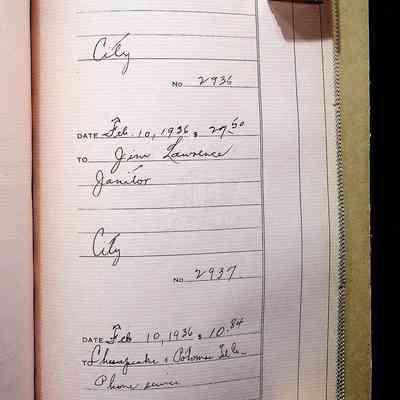 City
No 2936
DATE Feb. 10, 1936 $ 27.50
TO Jim Lawrence
Janitor
City
No 2937
DATE Feb 10, 1936 $ 10.84
TO Chesapeake & Potomac Tele-
Phone service